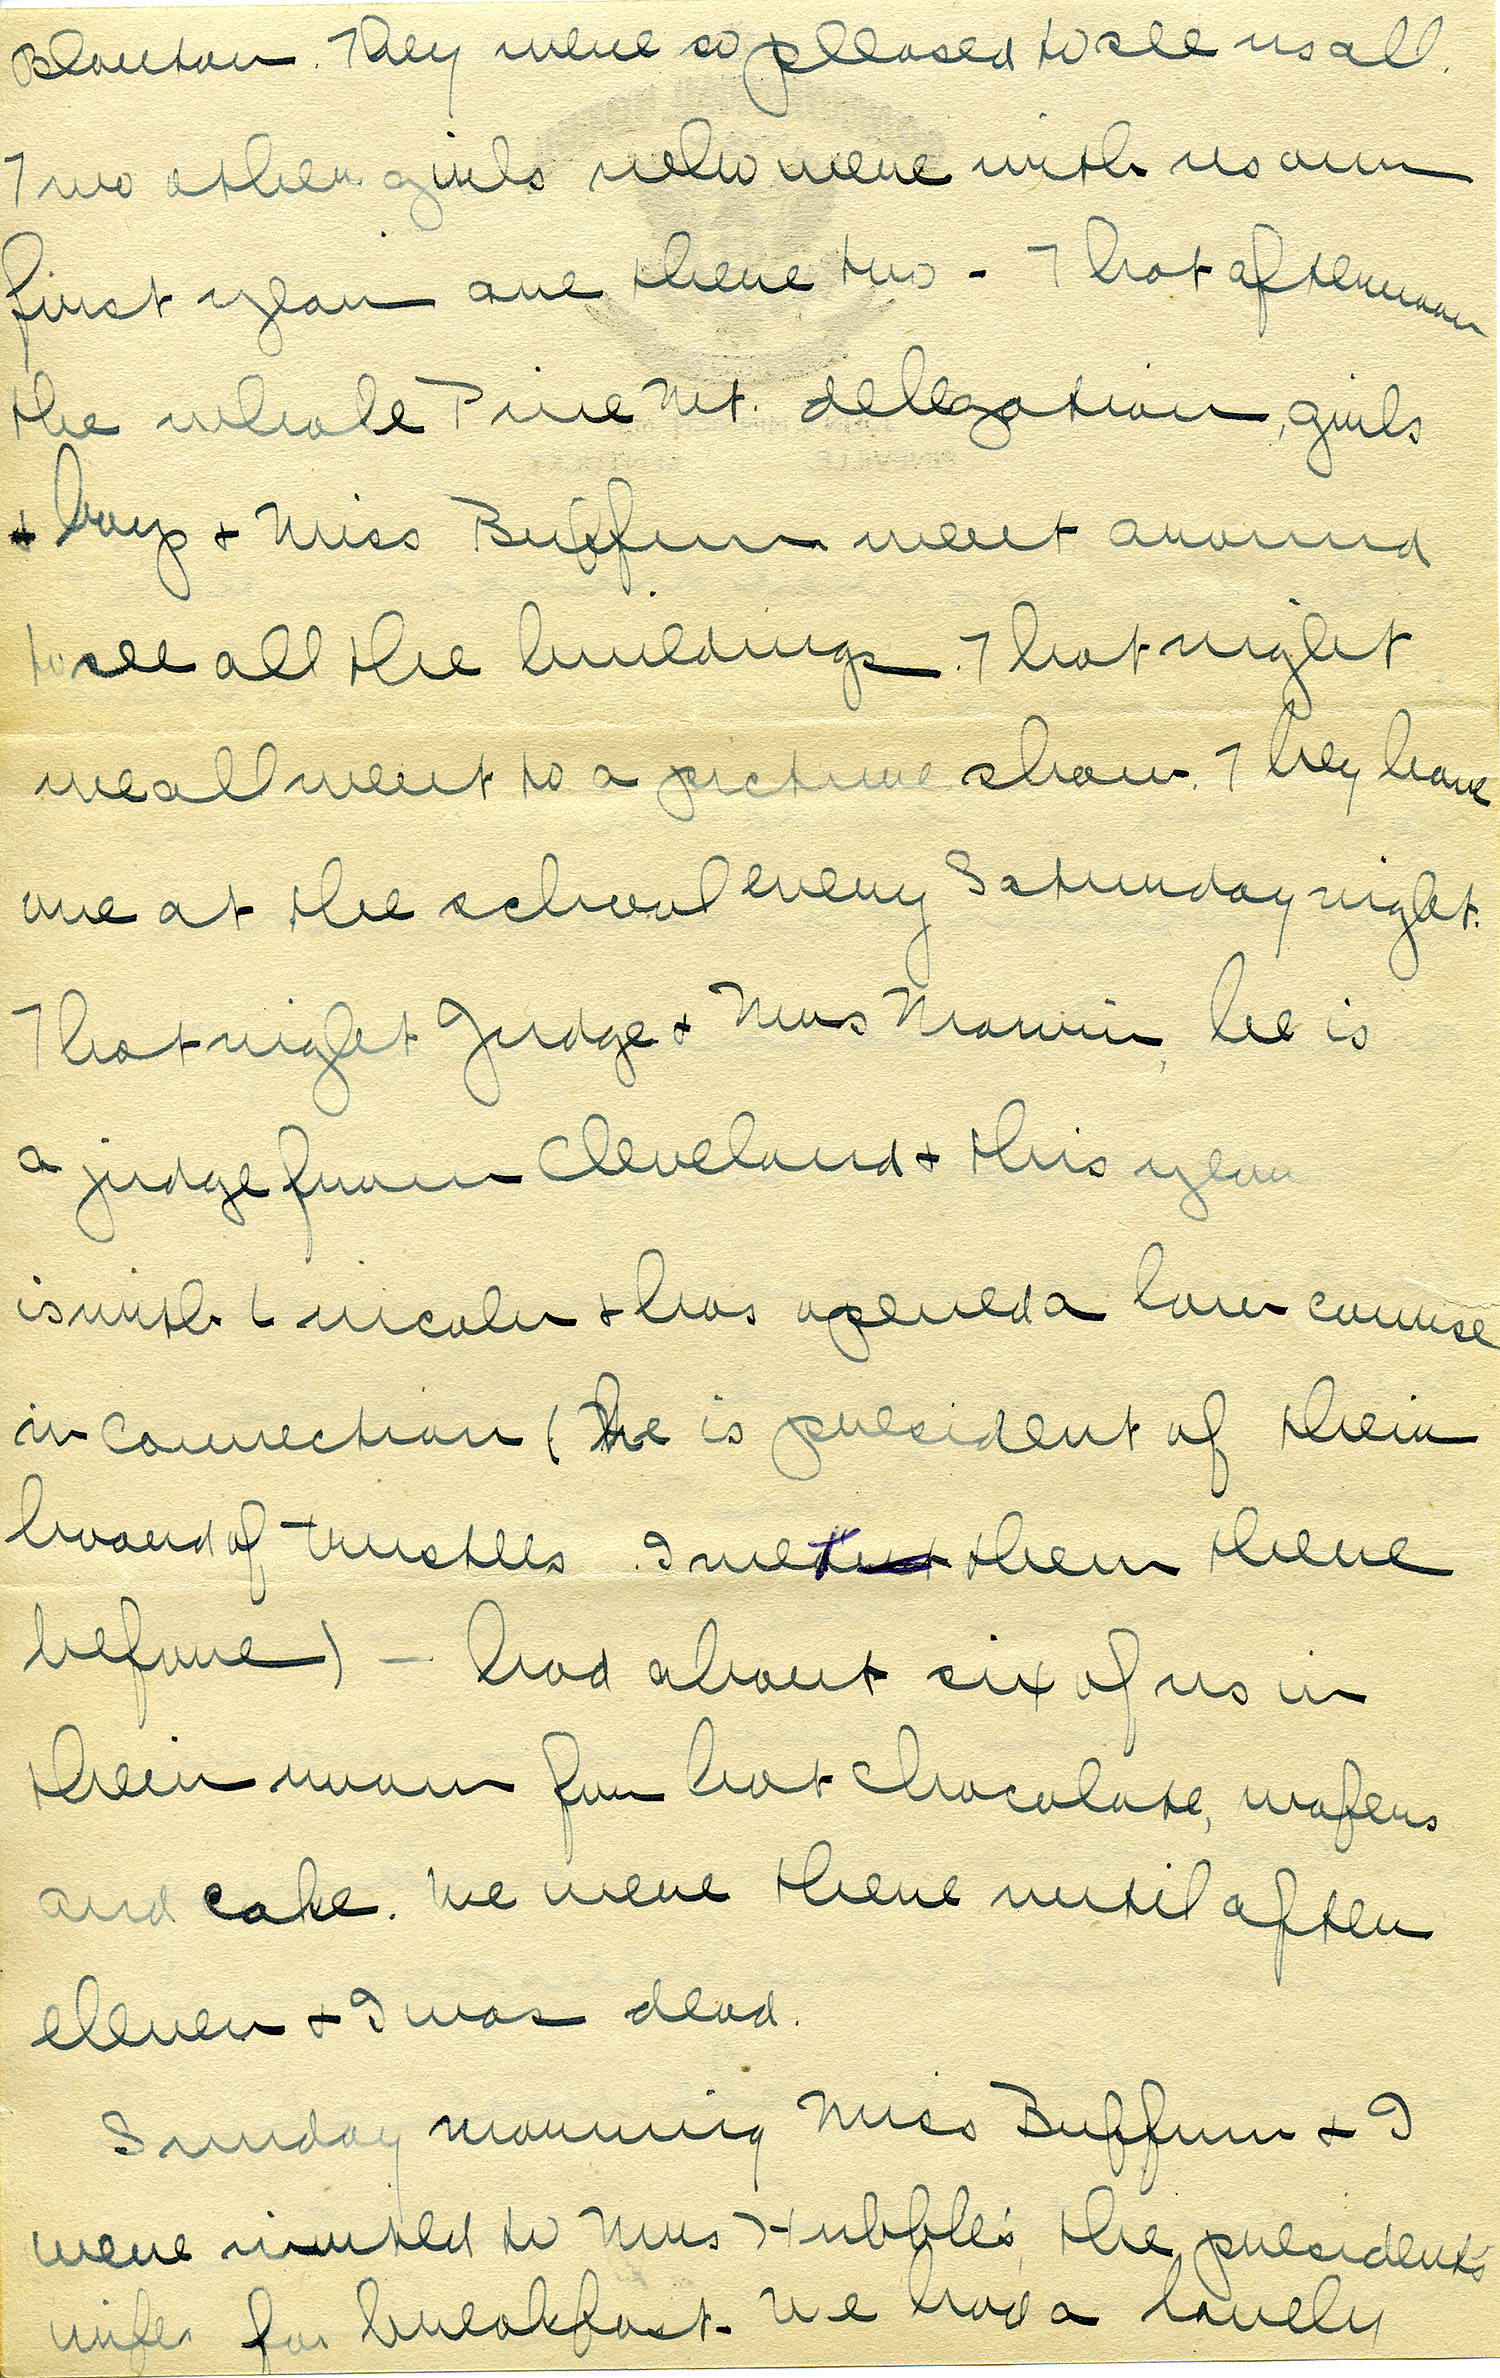 Blanton. They were so pleased to see us all.
Two other girls who were with us our
first year are there two - That afternoon
the whole Pine Mt. delegation, girls
+ boys + Miss Buffum went around
to see all the buildings. That night
we all went to a picture show. They have
one at the school every Saturday night.
That night Judge + Mrs Marvin, he is
a judge from Cleveland + this year
is with Lincoln + has opened a law course
in connection (He is president of their
board of trustees. I met them there
before) - had about six of us in
their room for hot chocolate, wafers
and cake. We were there until after
eleven + I was dead.
Sunday morning Miss Buffum + I
were invited to Mrs Hubble's, the president's
wife for breakfast. We had a lovely